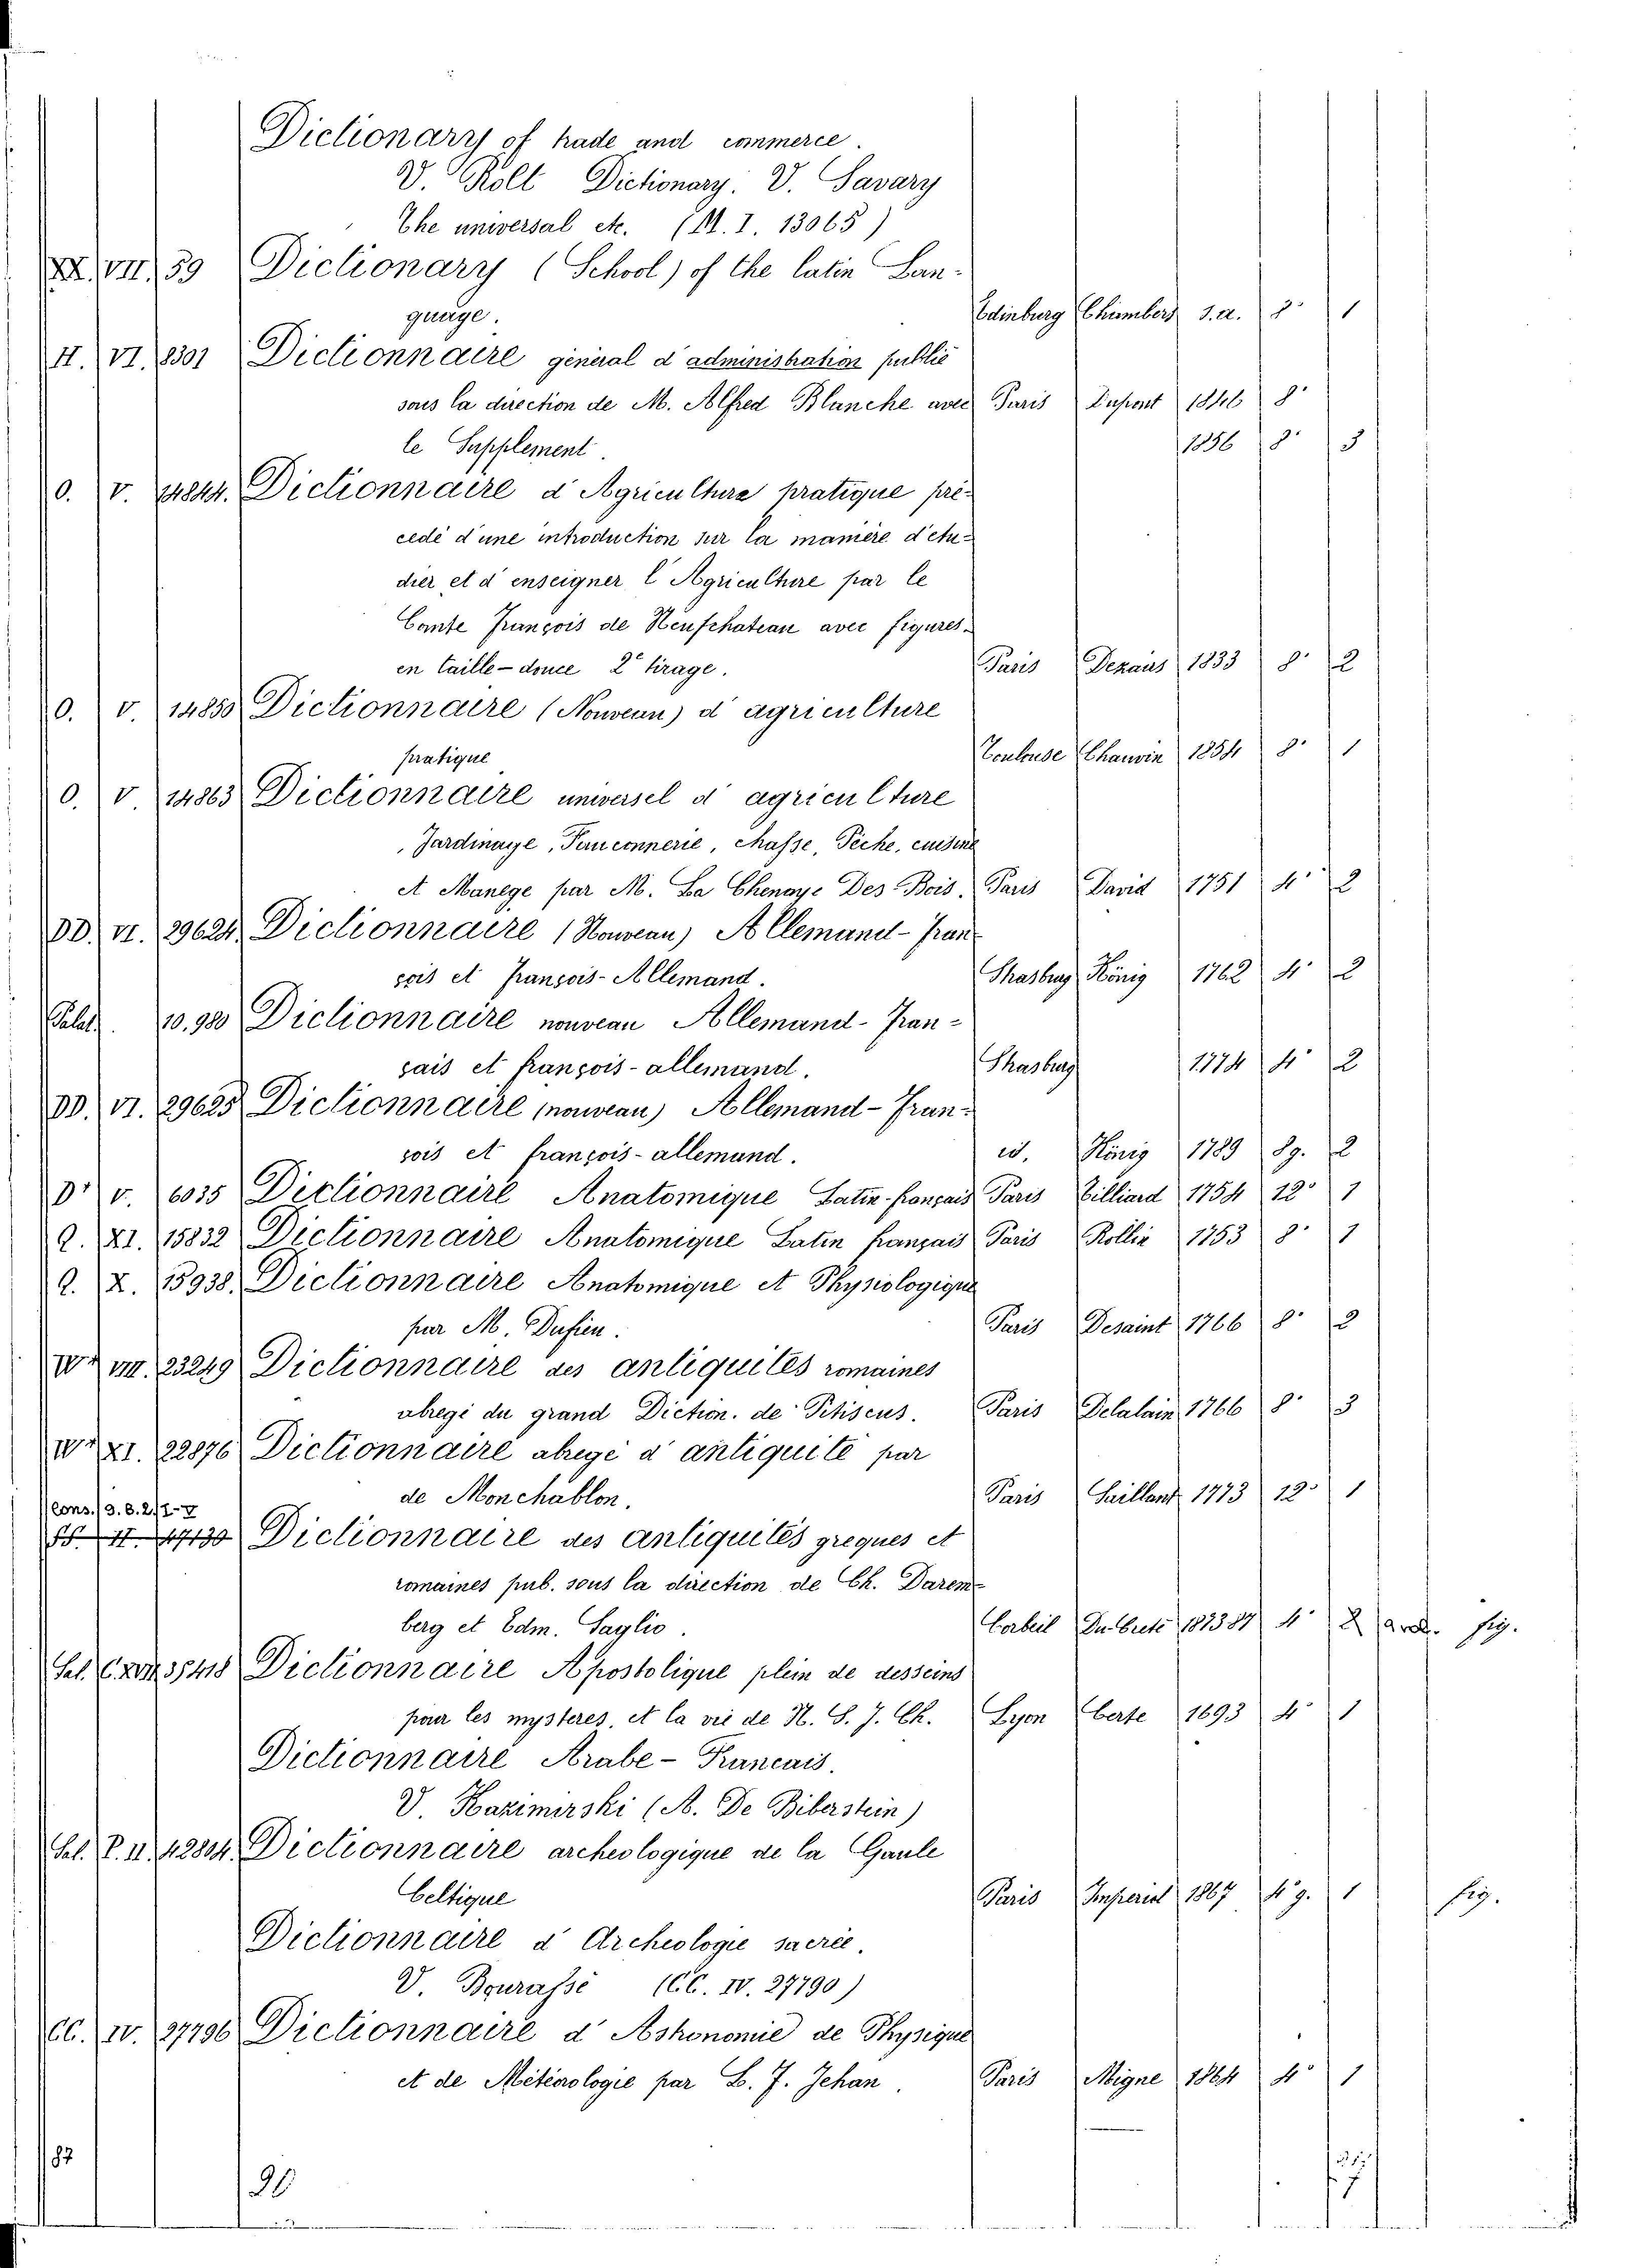 Dictionary of trade and commerce.
V. Rolt Dictionary. V. Savary
The universal etc. (M. I. 13065)
XX. VII. 59 Dictionary (School) of the latin Lan-
guage. Edinburg Chambers s.a. 8° 1
H. VI. 8301 Dictionnaire général d'administration public
sous la direction de M. Alfred Blanche avec Paris Dupont 1846 8°
le Supplement. 1856 8° 3
O. V. 14844. Dictionnaire d'Agriculture pratique pré-
cedé d'une introduction sur la manière d'etu-
dier et d'enseigner l'Agriculture par le
Comte François de Neufchateau avec figures
en taille-douce 2e tirage. Paris Dezaus 1833 8° 2
O. V. 14850 Dictionnaire (Nouveau) d'agriculture
pratique Toulouse Chauvin 1854 8° 1
O. V. 14863 Dictionnaire universel d'agriculture
Jardinage, Fauconnerie, chasse, Pêche, cuisine
et Manege par M. La Chenaye Des-Bois. Paris David 1751 4° 2
DD. VI. 29624. Dictionnaire (Nouveau) Allemand-Fran-
çois et françois-Allemand. Strasburg König 1762 4° 2
Palat. 10.980 Dictionnaire nouveau Allemand-Fran-
çais et françois-allemand. Strasburg 1774 4° 2
DD. VI. 29625 Dictionnaire (nouveau) Allemand-Fran-
çois et françois-allemand. id. König 1789 8g. 2
D' V. 6035 Dictionnaire Anatomique Latin-français Paris Tilliard 1754 12° 1
Q. XI. 15832 Dictionnaire Anatomique Latin français Paris Rollin 1753 8° 1
Q. X. 15938. Dictionnaire Anatomique et Physiologique
par M. Dufieu. Paris Desaint 1766 8° 2
W* VIII. 23249 Dictionnaire des antiquités romaines
abregé du grand Diction. de Pitiscus. Paris Delalain 1766 8° 3
W* XI. 22876 Dictionnaire abregé d'antiquité par
de Monchablon. Paris Saillant 1773 12° 1
Cons. 3.8.2/I-V
II. 47130 Dictionnaire des antiquités greques et
romaines pub. sous la direction de Ch. Darem-
berg et Edm. Saglio. Corbeil Du Creté 187387 4° 2 fig.
Sal. C. XVI 35418 Dictionnaire Apostolique plein de desseins
pour les mysteres, et la vie de N. S. J. Ch. Lyon Certe 1693 4° 1
Dictionnaire Arabe-Francais.
V. Kazimirski (A. De Biberstein)
Sal. P. II. 42804. Dictionnaire archeologique de la Gaule
Celtique Paris Imperial 1867 4°g. 1 fig.
Dictionnaire d'Archeologie sacrée.
V. Bourassé (CC. IV. 27790)
CC. IV. 27796 Dictionnaire d'Astronomie de Physique
et de Météorologie par L. F. Jehan. Paris Migne 1864 4° 1
82